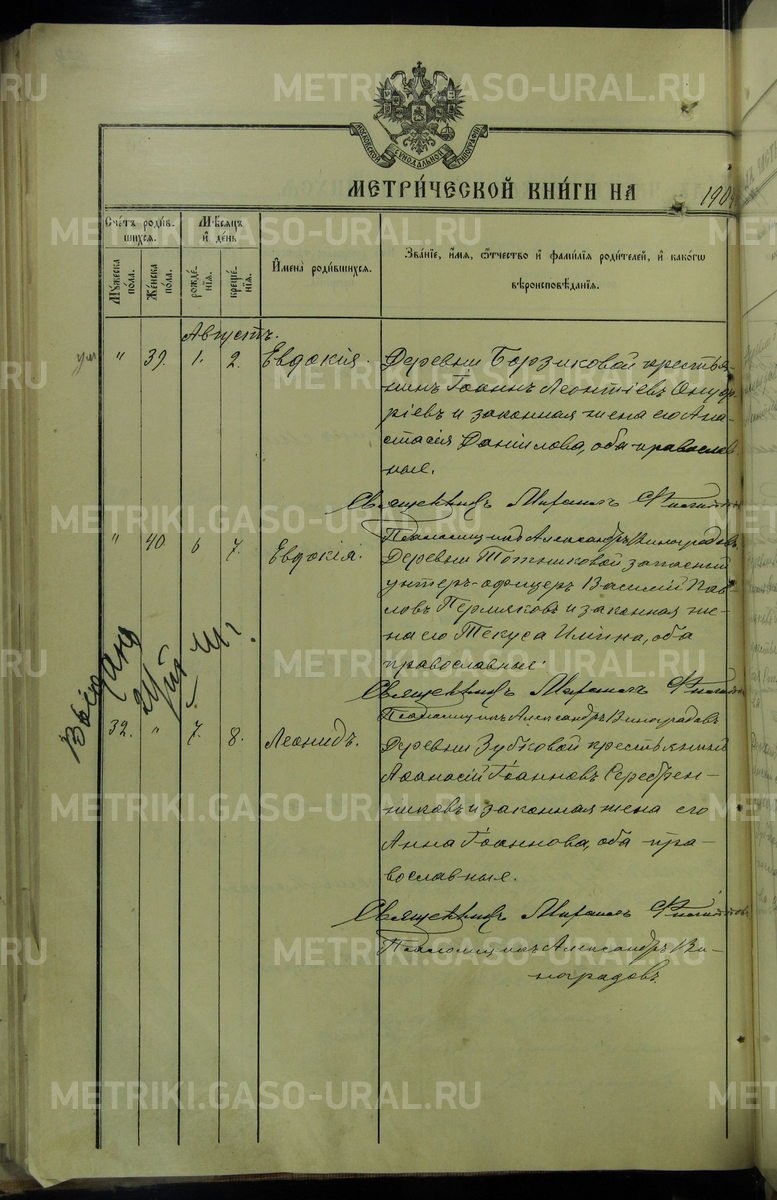 МОСКОВСКОЙ СѴНОДАЛЬНОЙ ТИПОГРАФІИ
МЕТРИ́ЧЕСКОЙ КНИ́ГИ НА 190
Сче́тъ роди́в-
шихся.
Мѣсяцъ
и҆ день
Му́жеска
по́ла.
Же́нска
по́ла.
рожде́-
нія.
креще́-
нія.
И҆мена̀ роди́вшихся.
Зва́ніе, и҆́мя, ѻ҆́тчество и҆ фами́лія роди́телей, и҆ како́гѡ
вѣроисповѣ́данія.
Августъ.
ум
" 39. 1. 2. Евдокія. Деревни Борзиковой крестья-
нинъ Іоаннъ Леонтіевъ Онуф-
ріевъ и законная жена его Ана-
стасія Даніилова, оба православ-
ные.
Священникъ
Псаломщикъ Александръ Виноградовъ
" 40 6 7. Евдокія. Деревни запасный
унтеръ-офицеръ Василій Пав-
ловъ Пермяковъ и законная же-
на его Текуса Ильина, оба
православные.
Выдана
Священникъ
Псаломщикъ Александръ Виноградовъ
32. " 7. 8. Леонидъ. Деревни Зубковой крестьянинъ
Аѳанасій Іоанновъ Серебрен-
никовъ и законная жена его
Анна Іоаннова, оба пра-
вославные.
Священникъ
Псаломщикъ Александръ Ви-
ноградовъ
METRIKI.GASO-URAL.RU